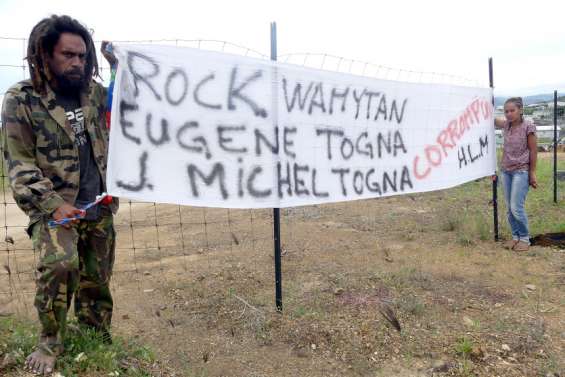 ROCK. WAMYTAN
EUGENE TOGNA
J. MicHEL TOGNA
CORROMPU
H.L.M